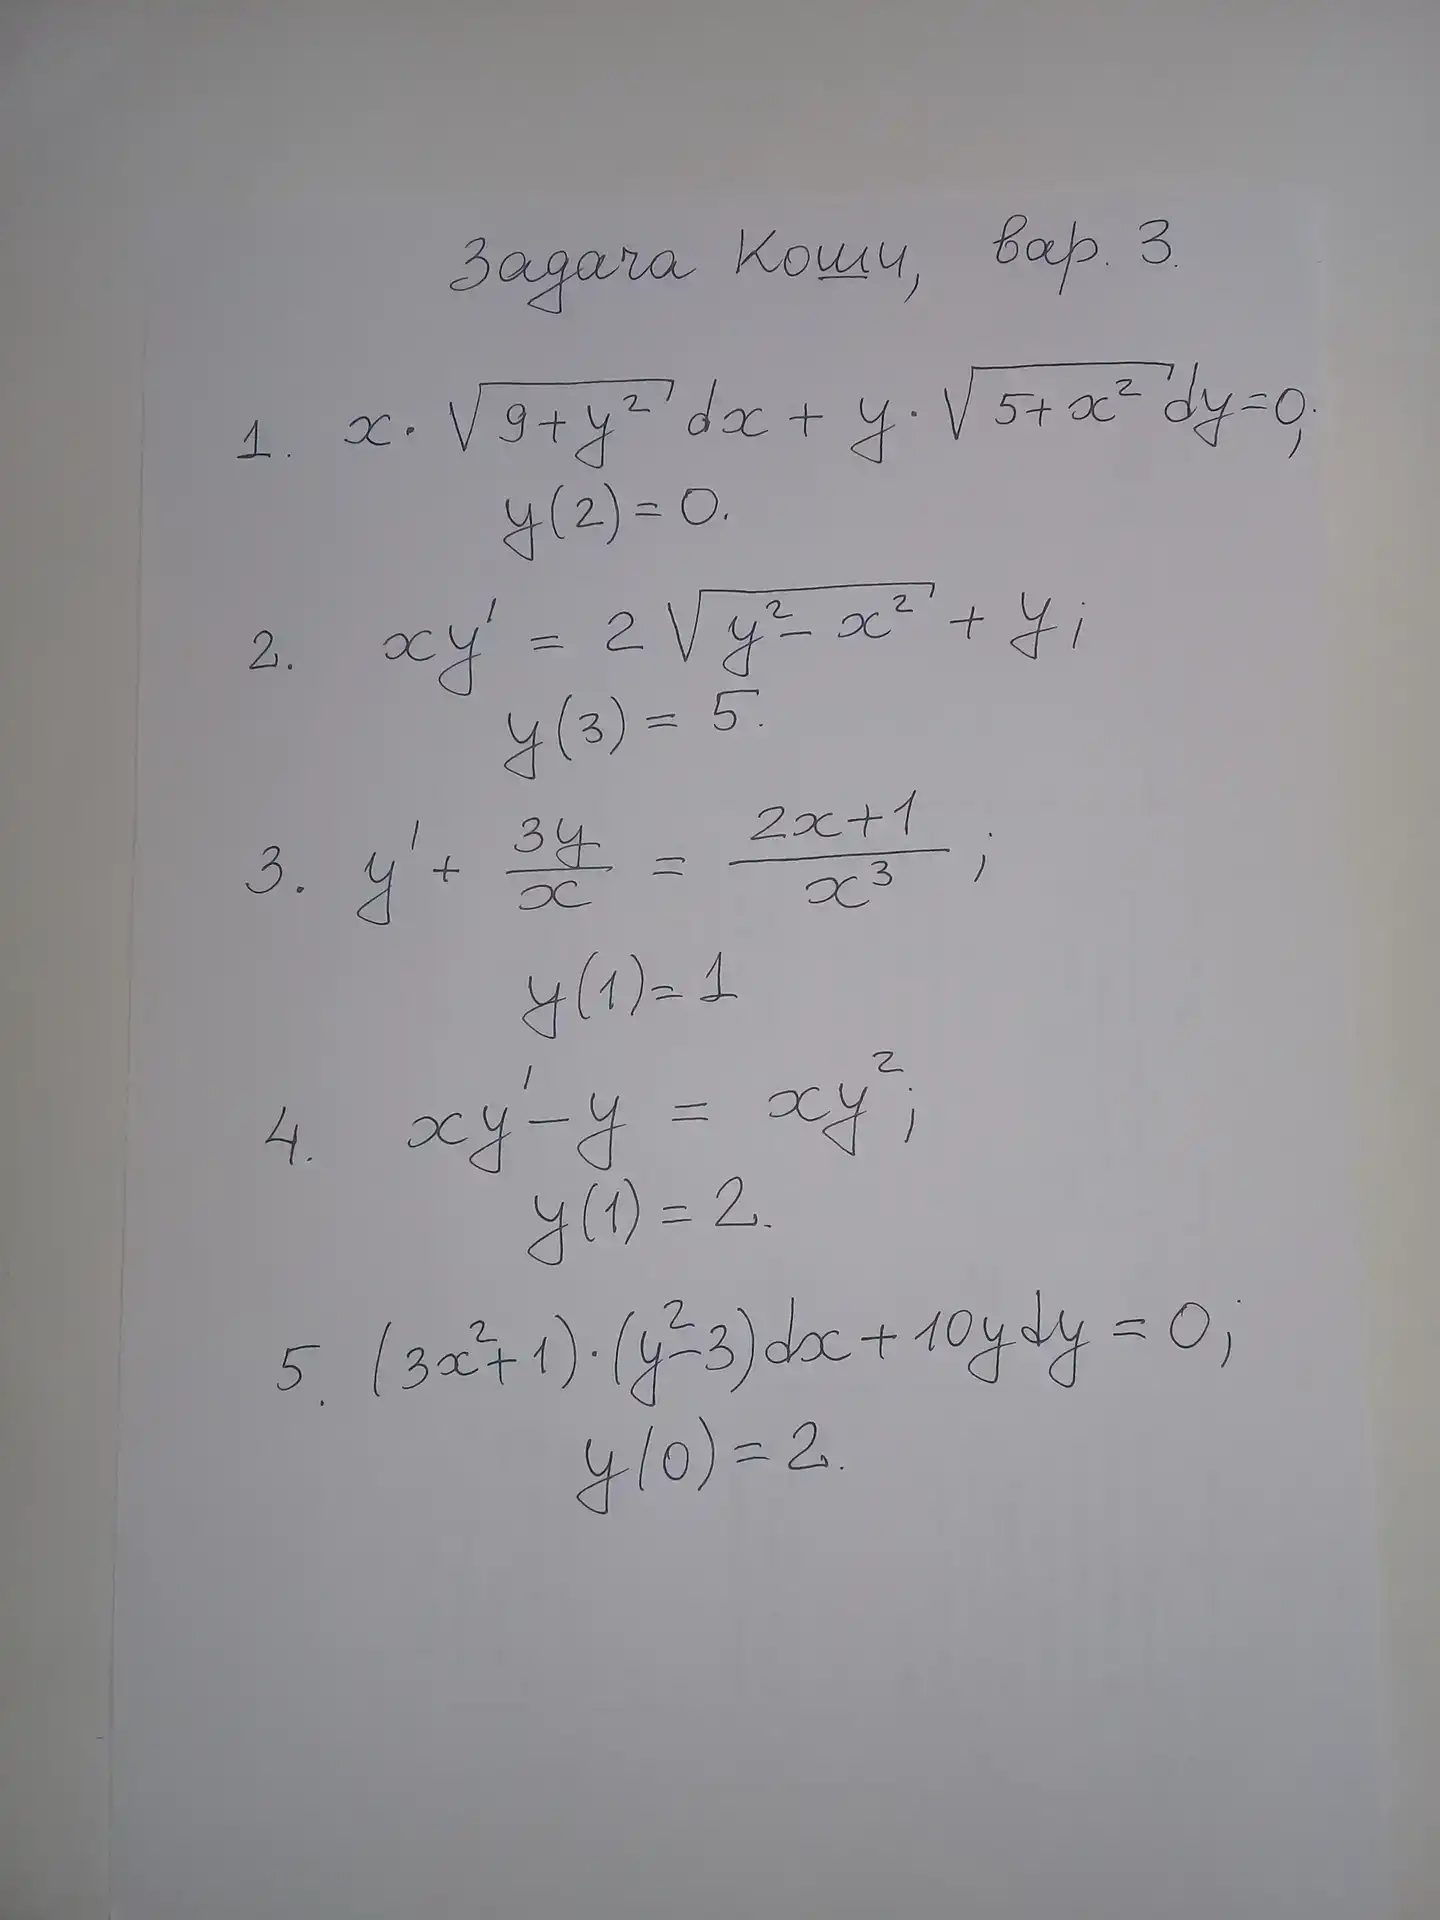 Задача Коши, вар. 3.
1. x·√(9+y²) dx + y·√(5+x²) dy=0;
y(2)=0.
2. xy' = 2√(y²-x²) + y;
y(3) = 5.
3. y' + 3y/x = (2x+1)/x³;
y(1)=1
4. xy'-y = xy²;
y(1)=2.
5. (3x²+1)·(y²-3)dx+10ydy=0;
y(0)=2.